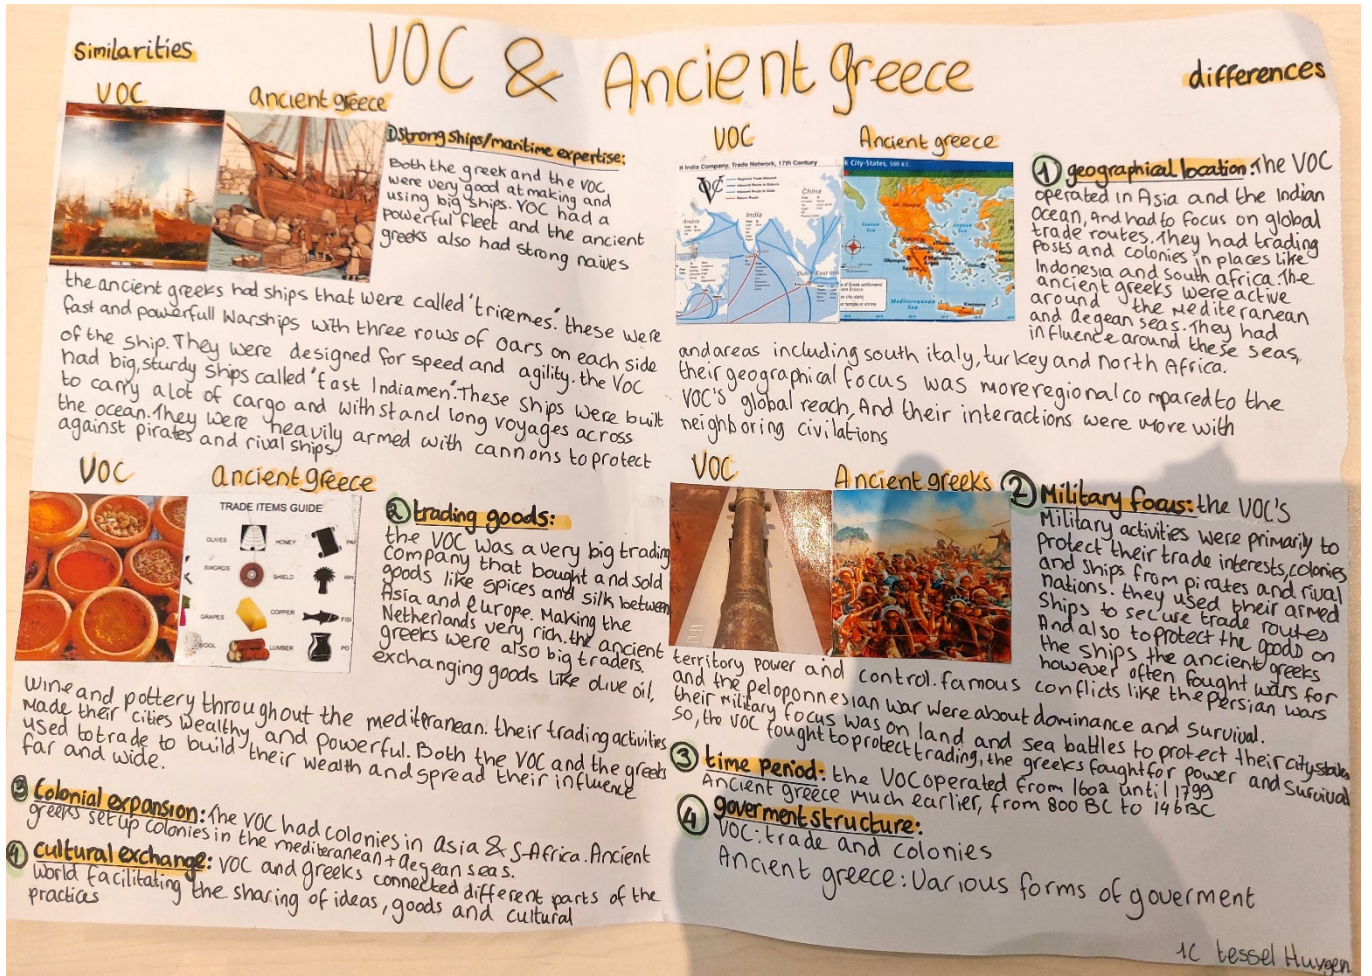 Similarities
VOC & Ancient greece
differences
VOC
Ancient greece
① Strong ships/maritime expertise:
Both the greek and the VOC
were very good at making and
using big ships. VOC had a
powerful fleet and the ancient
greeks also had strong naives
the ancient greeks had ships that were called "triremes". these were
fast and powerfull warships with three rows of oars on each side
of the ship. They were designed for speed and agility. the VOC
had big, sturdy ships called "East Indiamen". These ships were built
to carry alot of cargo and withstand long voyages across
the ocean. They were heavily armed with cannons to protect
against pirates and rival ships
VOC
Ancient greece
TRADE ITEMS GUIDE
OLIVES
HONEY
SWORDS
SHIELD
GRAPES
COPPER
LUMBER
② trading goods:
the VOC was a very big trading
company that bought and sold
goods like spices and silk between
Asia and Europe. Making the
Netherlands very rich. the ancient
greeks were also big traders.
exchanging goods like olive oil,
wine and pottery throughout the mediteranean. their trading activities
made their cities wealthy and powerful. Both the VOC and the greeks
used to trade to build their wealth and spread their influence
far and wide.
③ Colonial expansion: The VOC had colonies in Asia & S-Africa. Ancient
greeks set up colonies in the mediteranean + Aegean seas.
④ cultural exchange: VOC and greeks connected different parts of the
world facilitating the sharing of ideas, goods and cultural
practices
VOC
Ancient greece
t India Company, Trade Network, 17th Century
VOC
China
India
k City-States, 500 B.C.
Mediterranean Sea
① geographical location: The VOC
operated in Asia and the Indian
Ocean, And had to focus on global
trade routes. They had trading
posts and colonies in places like
Indonesia and south africa. The
ancient greeks were active
around the Mediteranean
and aegean seas. They had
influence around these seas,
and areas including south italy, turkey and north Africa.
their geographical focus was more regional compared to the
VOC's global reach, And their interactions were more with
neighboring civilations
VOC
Ancient greeks
② Military focus: the VOC's
Military activities were primarily to
protect their trade interests, colonies
and ships from pirates and rival
nations. they used their armed
ships to secure trade routes
And also to protect the goods on
the ships the ancient greeks
however often fought wars for
territory power and control. famous conflicts like the persian wars
and the peloponnesian war were about dominance and survival.
their military focus was on land and sea battles to protect their citystates
so, the VOC fought to protect trading, the greeks fought for power and survival
③ time period: the VOC operated from 1602 until 1799
Ancient greece much earlier, from 800 BC to 146 BC
④ goverment structure:
VOC: trade and colonies
Ancient greece: Various forms of goverment
1C tessel Huygen